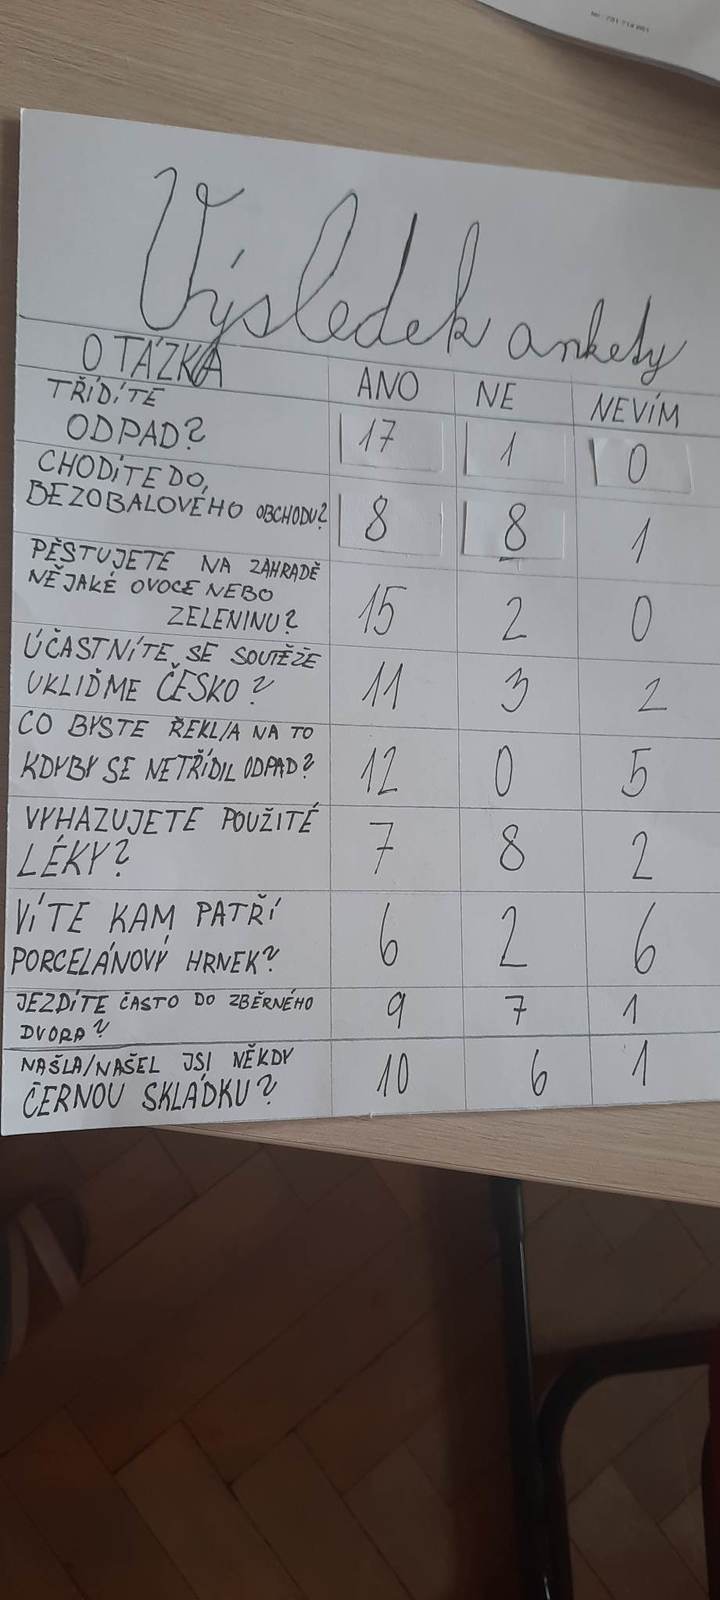 Výsledek ankety
OTÁZKA ANO NE NEVÍM
TŘÍDÍTE
ODPAD? 17 1 0
CHODÍTE DO,
BEZOBALOVÉHO OBCHODU? 8 8 1
PĚSTUJETE NA ZAHRADĚ
NĚJAKÉ OVOCE NEBO
ZELENINU? 15 2 0
ÚČASTNÍTE SE SOUTĚŽE
UKLIĎME ČESKO? 11 3 2
CO BYSTE ŘEKL/A NA TO
KDYBY SE NETŘÍDIL ODPAD? 12 0 5
VYHAZUJETE POUŽITÉ
LÉKY? 7 8 2
VÍTE KAM PATŘÍ
PORCELÁNOVÝ HRNEK? 6 2 6
JEZDÍTE ČASTO DO ZBĚRNÉHO
DVORA? 9 7 1
NAŠLA/NAŠEL JSI NĚKDY
ČERNOU SKLÁDKU? 10 6 1